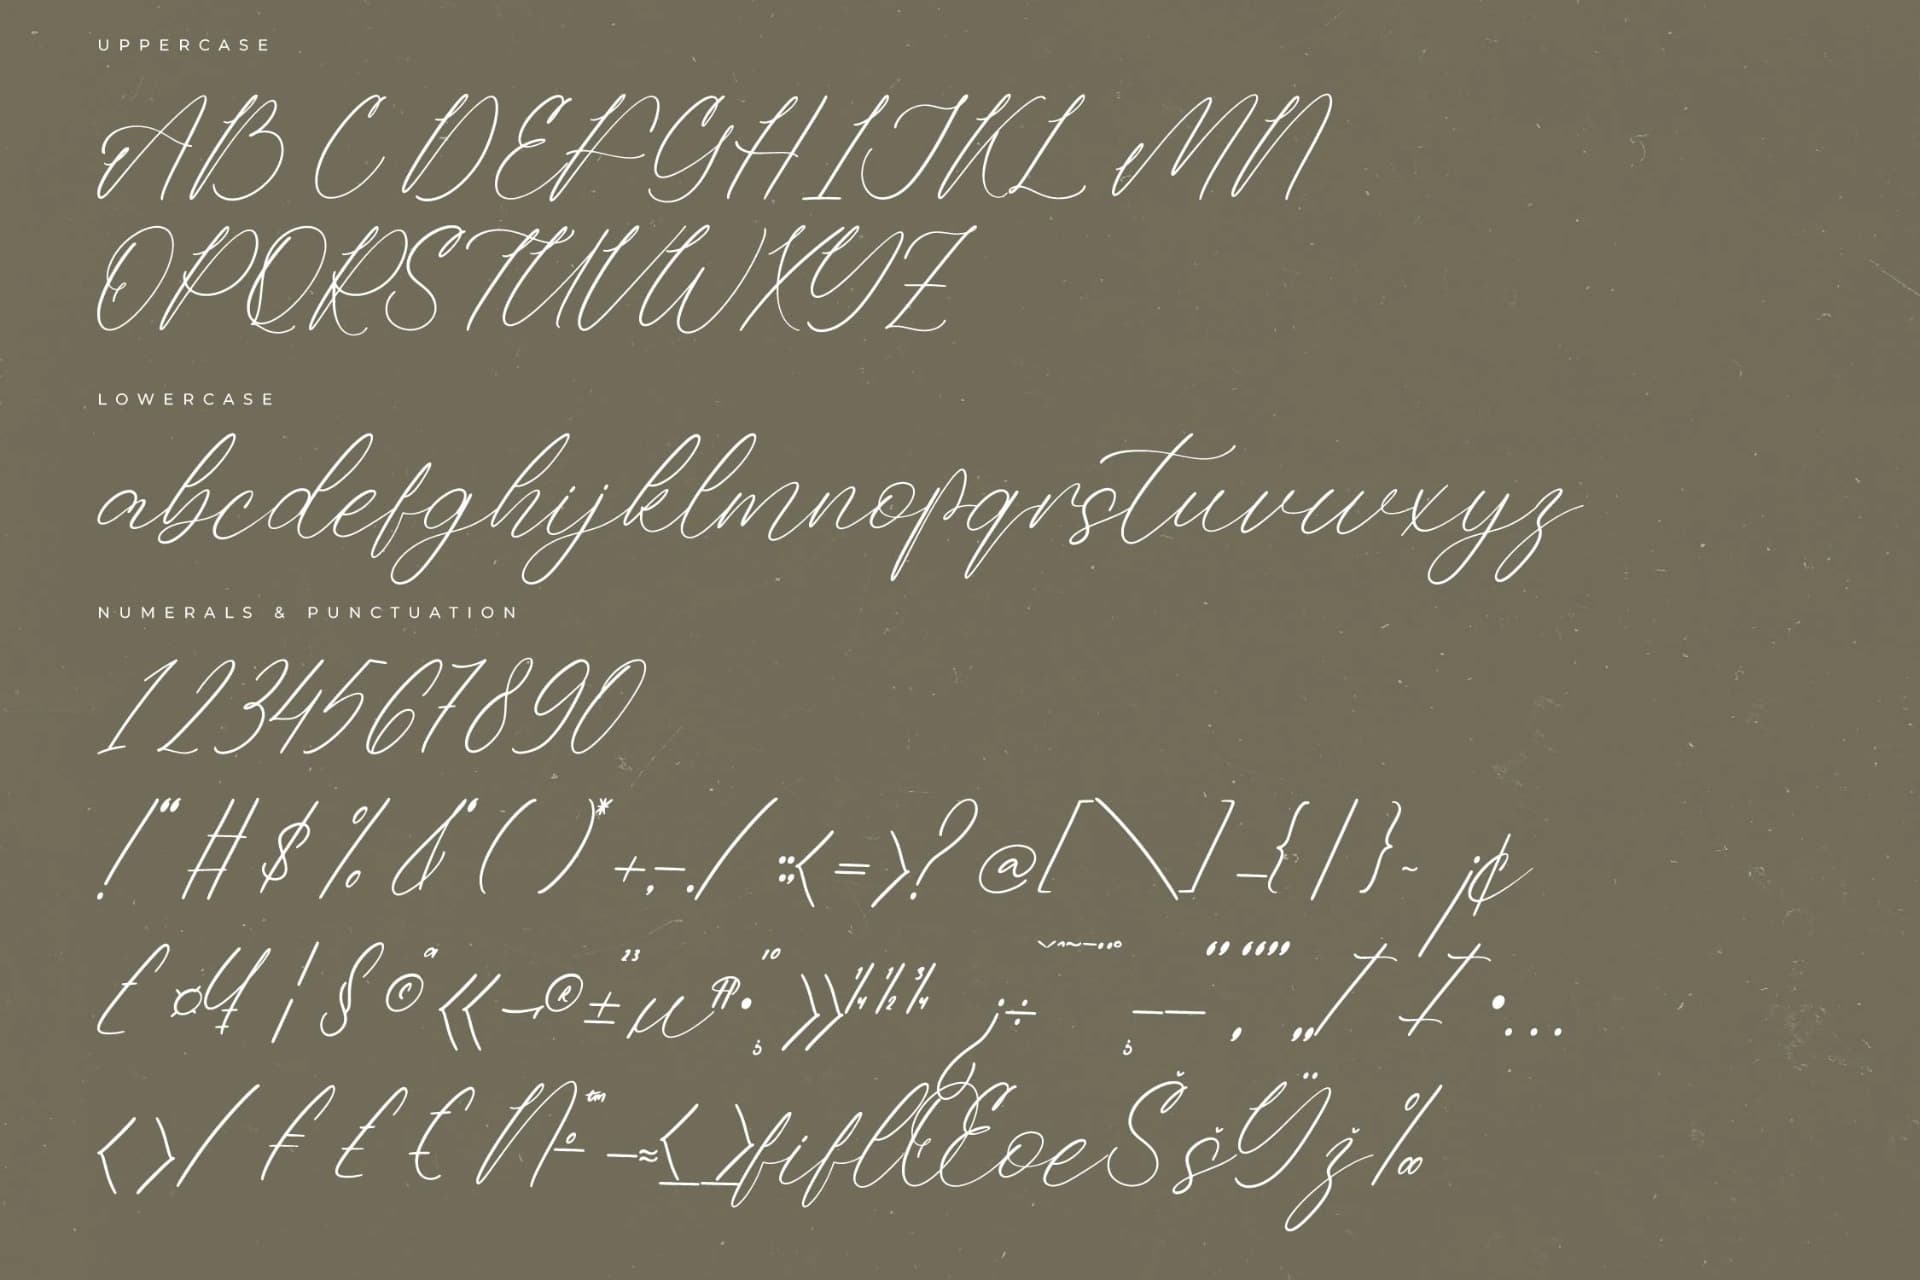 UPPERCASE
ABCDEFGHIJKLMN
OPQRSTUVWXYZ
LOWERCASE
abcdefghijklmnopqrstuvwxyz
NUMERALS & PUNCTUATION
1234567890
!"#$%&'()*+,-./:;<=>?@[\]_{|}~¡¢
£¤¥¦§©ª«¬®±²³µ¶·¸¹º»¼½¾¿÷ˇˆ˜¯˙¨˚¸–—‘’‚“”„†‡•…
‹›⁄₣₤€№™−≈≤≥fiflŒœŠšŸž‰